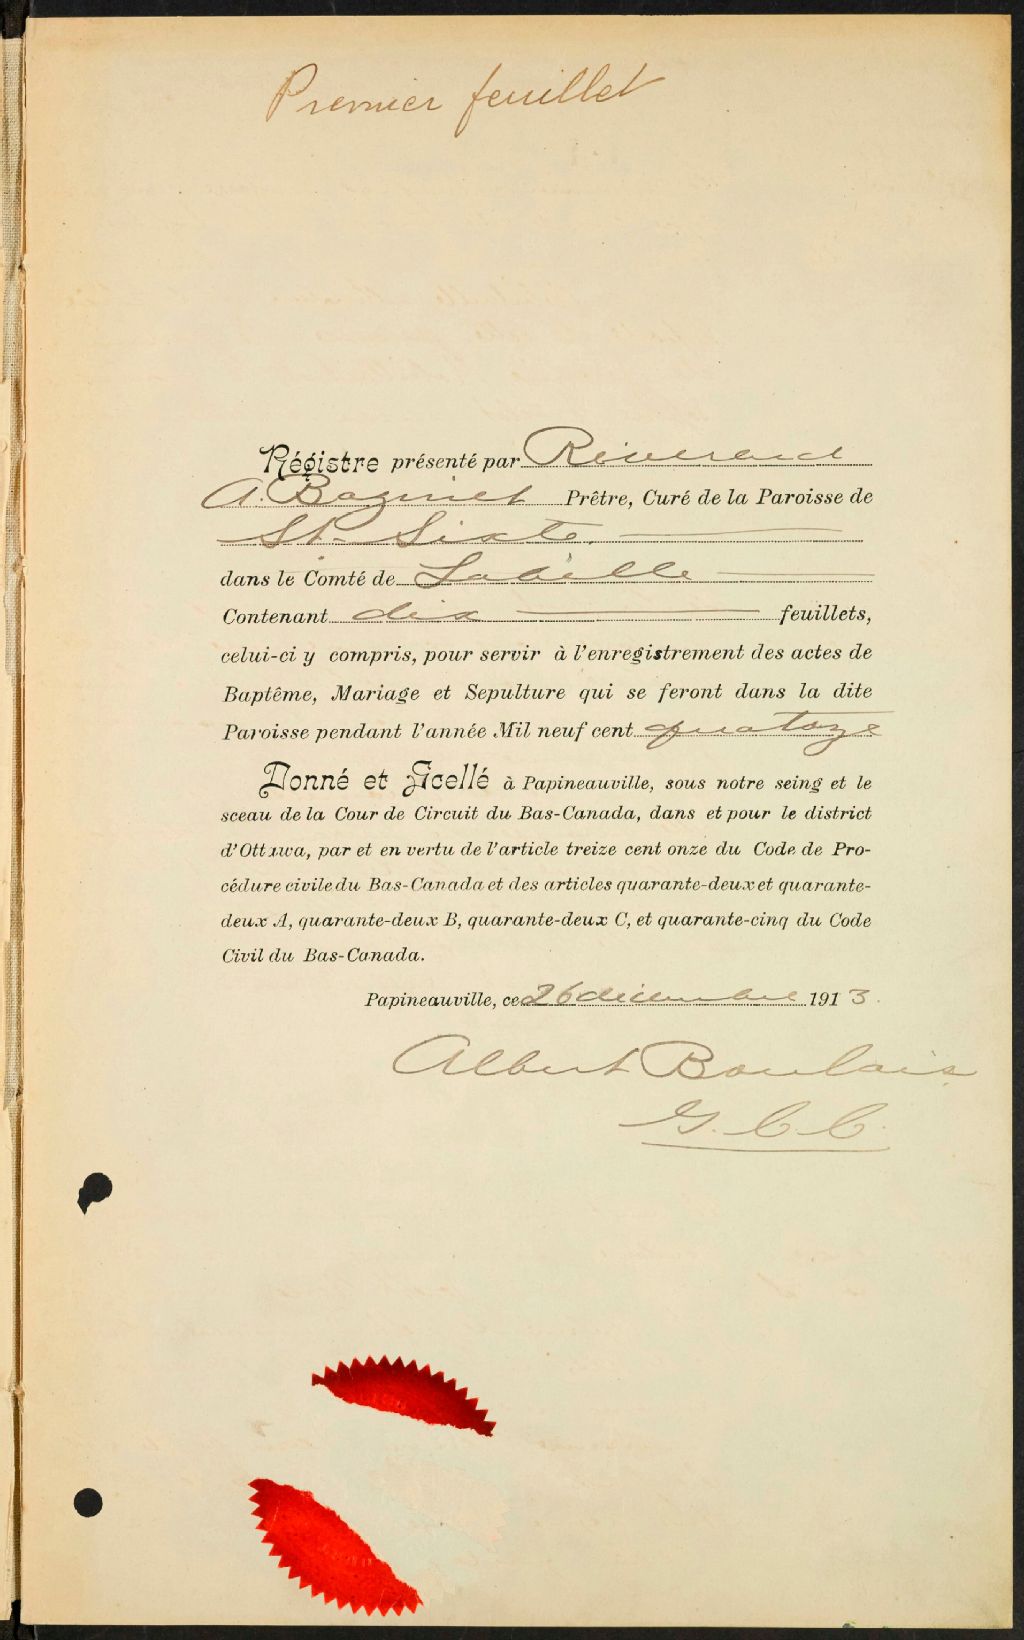 Premier feuillet
Régistre présenté par Révérend
A. Bazinet Prêtre, Curé de la Paroisse de
St. Sixte.
dans le Comté de Labelle
Contenant dix feuillets,
celui-ci y compris, pour servir à l'enregistrement des actes de
Baptême, Mariage et Sepulture qui se feront dans la dite
Paroisse pendant l'année Mil neuf cent quatoze
Donné et Scellé à Papineauville, sous notre seing et le
sceau de la Cour de Circuit du Bas-Canada, dans et pour le district
d'Ottawa, par et en vertu de l'article treize cent onze du Code de Pro-
cédure civile du Bas-Canada et des articles quarante-deux et quarante-
deux A, quarante-deux B, quarante-deux C, et quarante-cinq du Code
Civil du Bas-Canada.
Papineauville, ce 26 décembre 1913.
Albert Boulais
G. C. C.